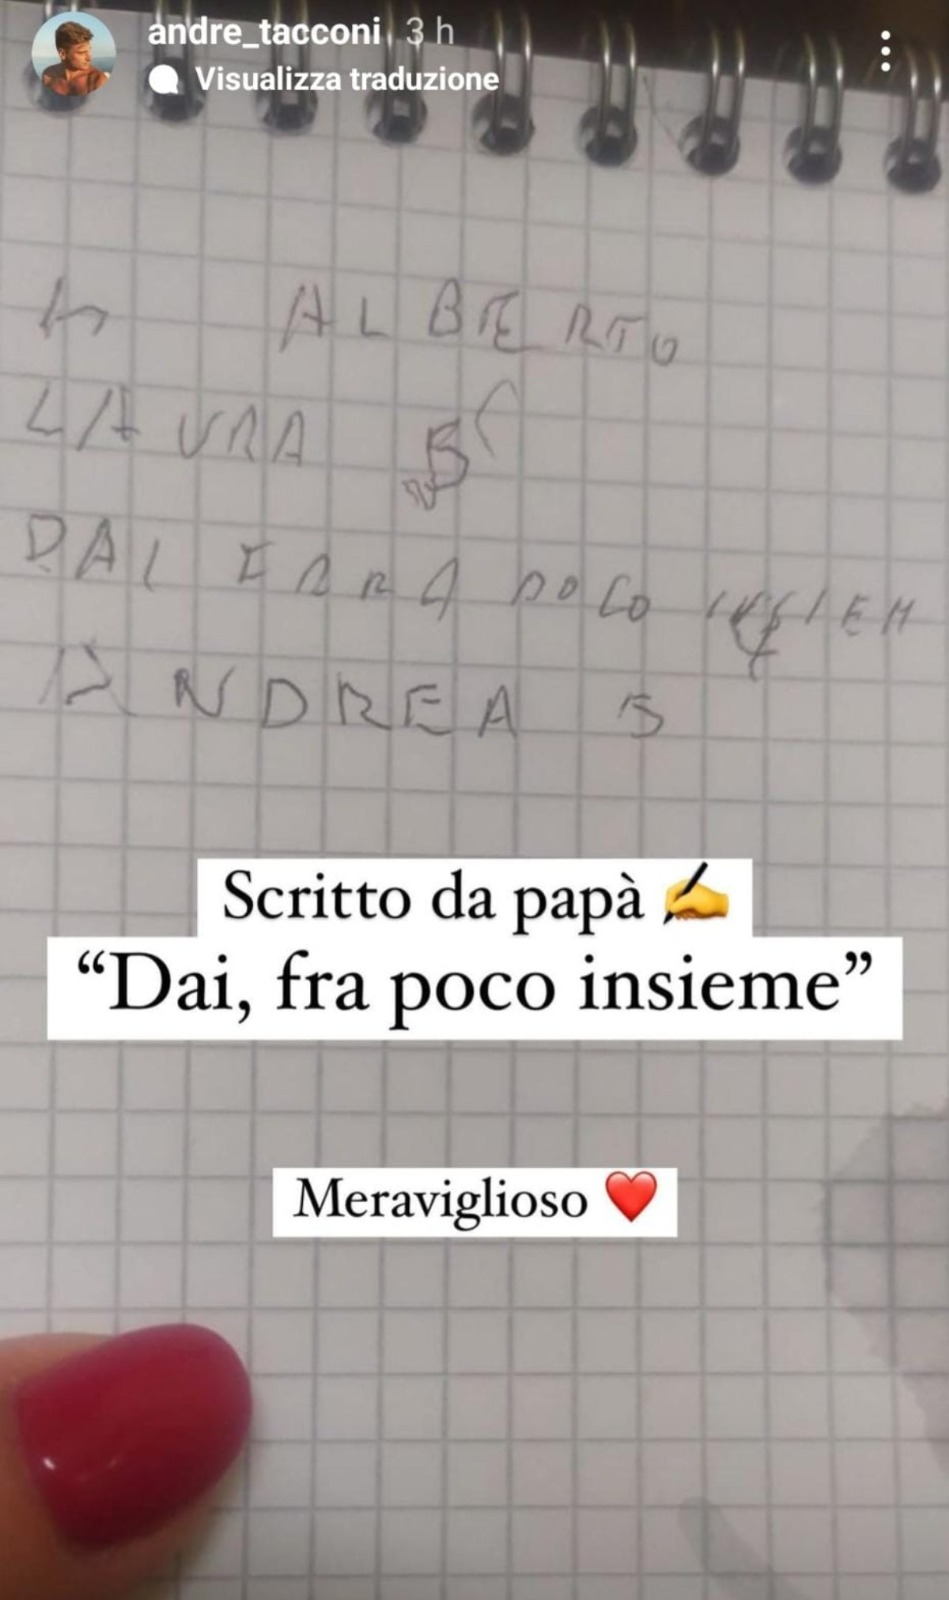 andre_tacconi 3 h
Visualizza traduzione
ALBERTO
LAURA B
DAI FRA POCO INSIEM
ANDREA S
Scritto da papà ✍️
“Dai, fra poco insieme”
Meraviglioso ❤️